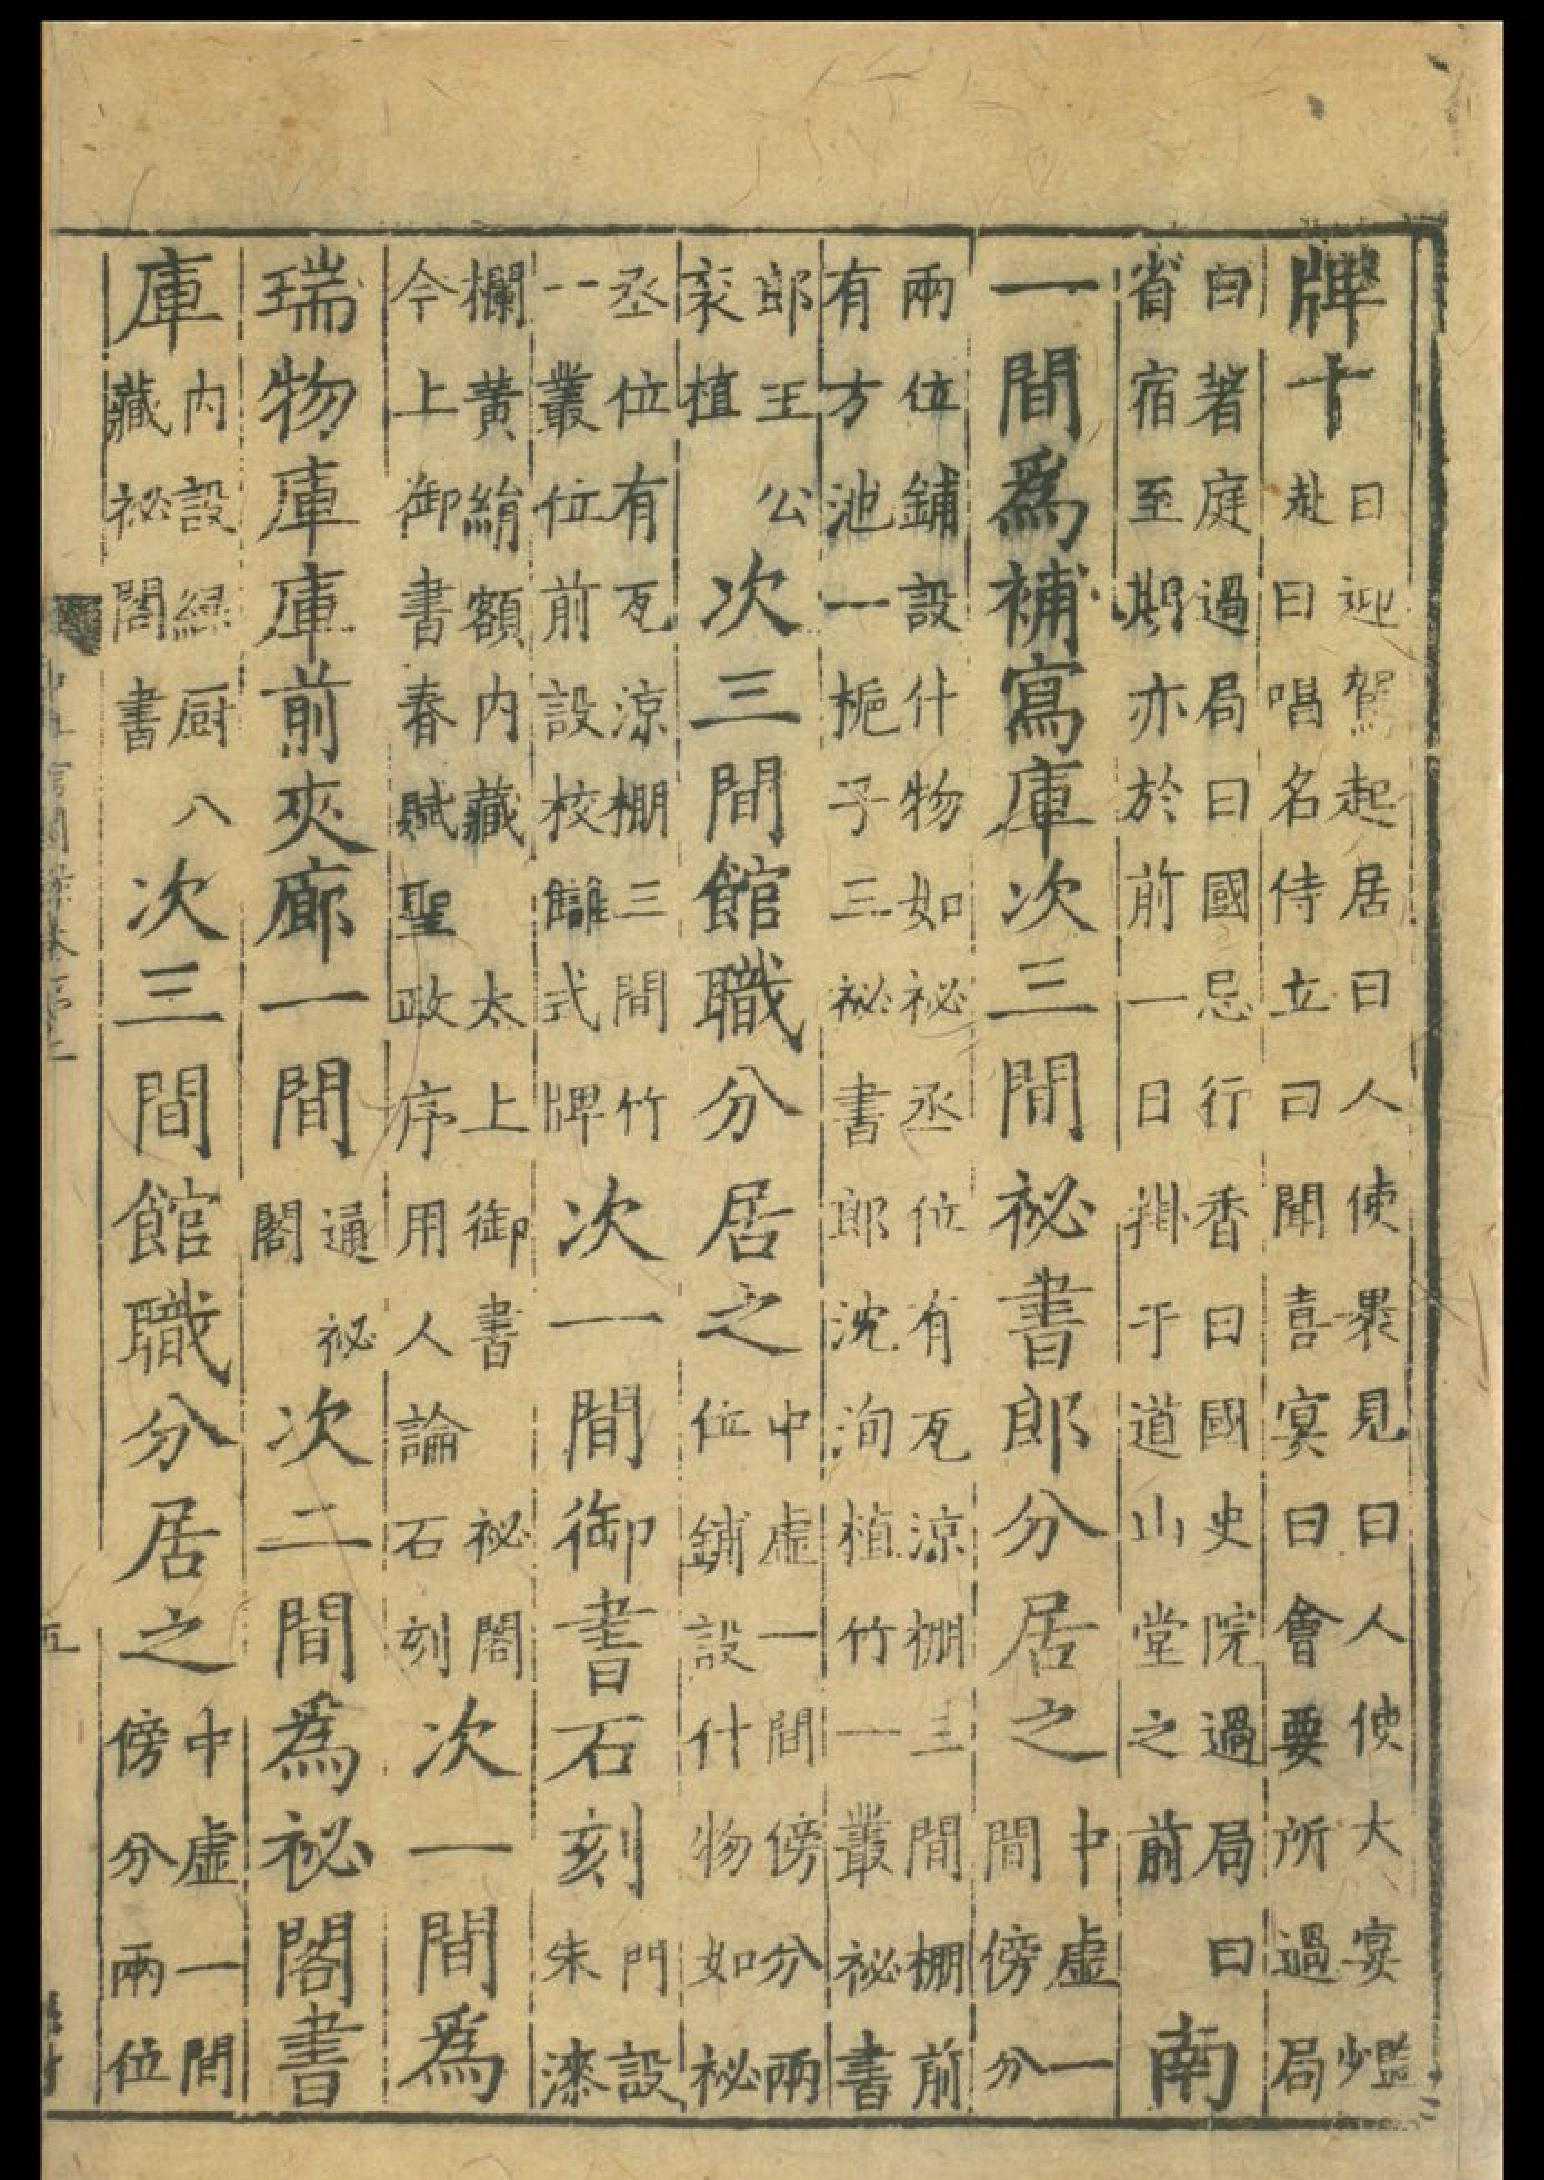 牌十曰迎駕起居曰人使見曰人使大宴少監赴曰唱名侍立曰聞喜宴曰會要所過局
曰著庭過局曰國忌行香曰國史院過局曰省宿至期亦於前一日掛于道山堂之前南
一間爲補寫庫次三間祕書郎分居之中虛一間傍分
兩位鋪設什物如祕丞位有瓦涼棚三間棚前有方池一梔子三祕書郎沈洵植竹一叢祕書
郎王公袤植次三間館職分居之中虛一間傍分兩位鋪設什物如祕
丞位有瓦涼棚三間竹一叢位前設校讎式牌次一間御書石刻門設朱漆
欄黃絹額內藏太上御書祕閣今上御書春賦聖政序用人論石刻次一間爲
瑞物庫庫前夾廊一間通祕閣次二間爲祕閣書
庫內設綠厨八藏祕閣書次三間館職分居之中虛一間傍分兩位
五